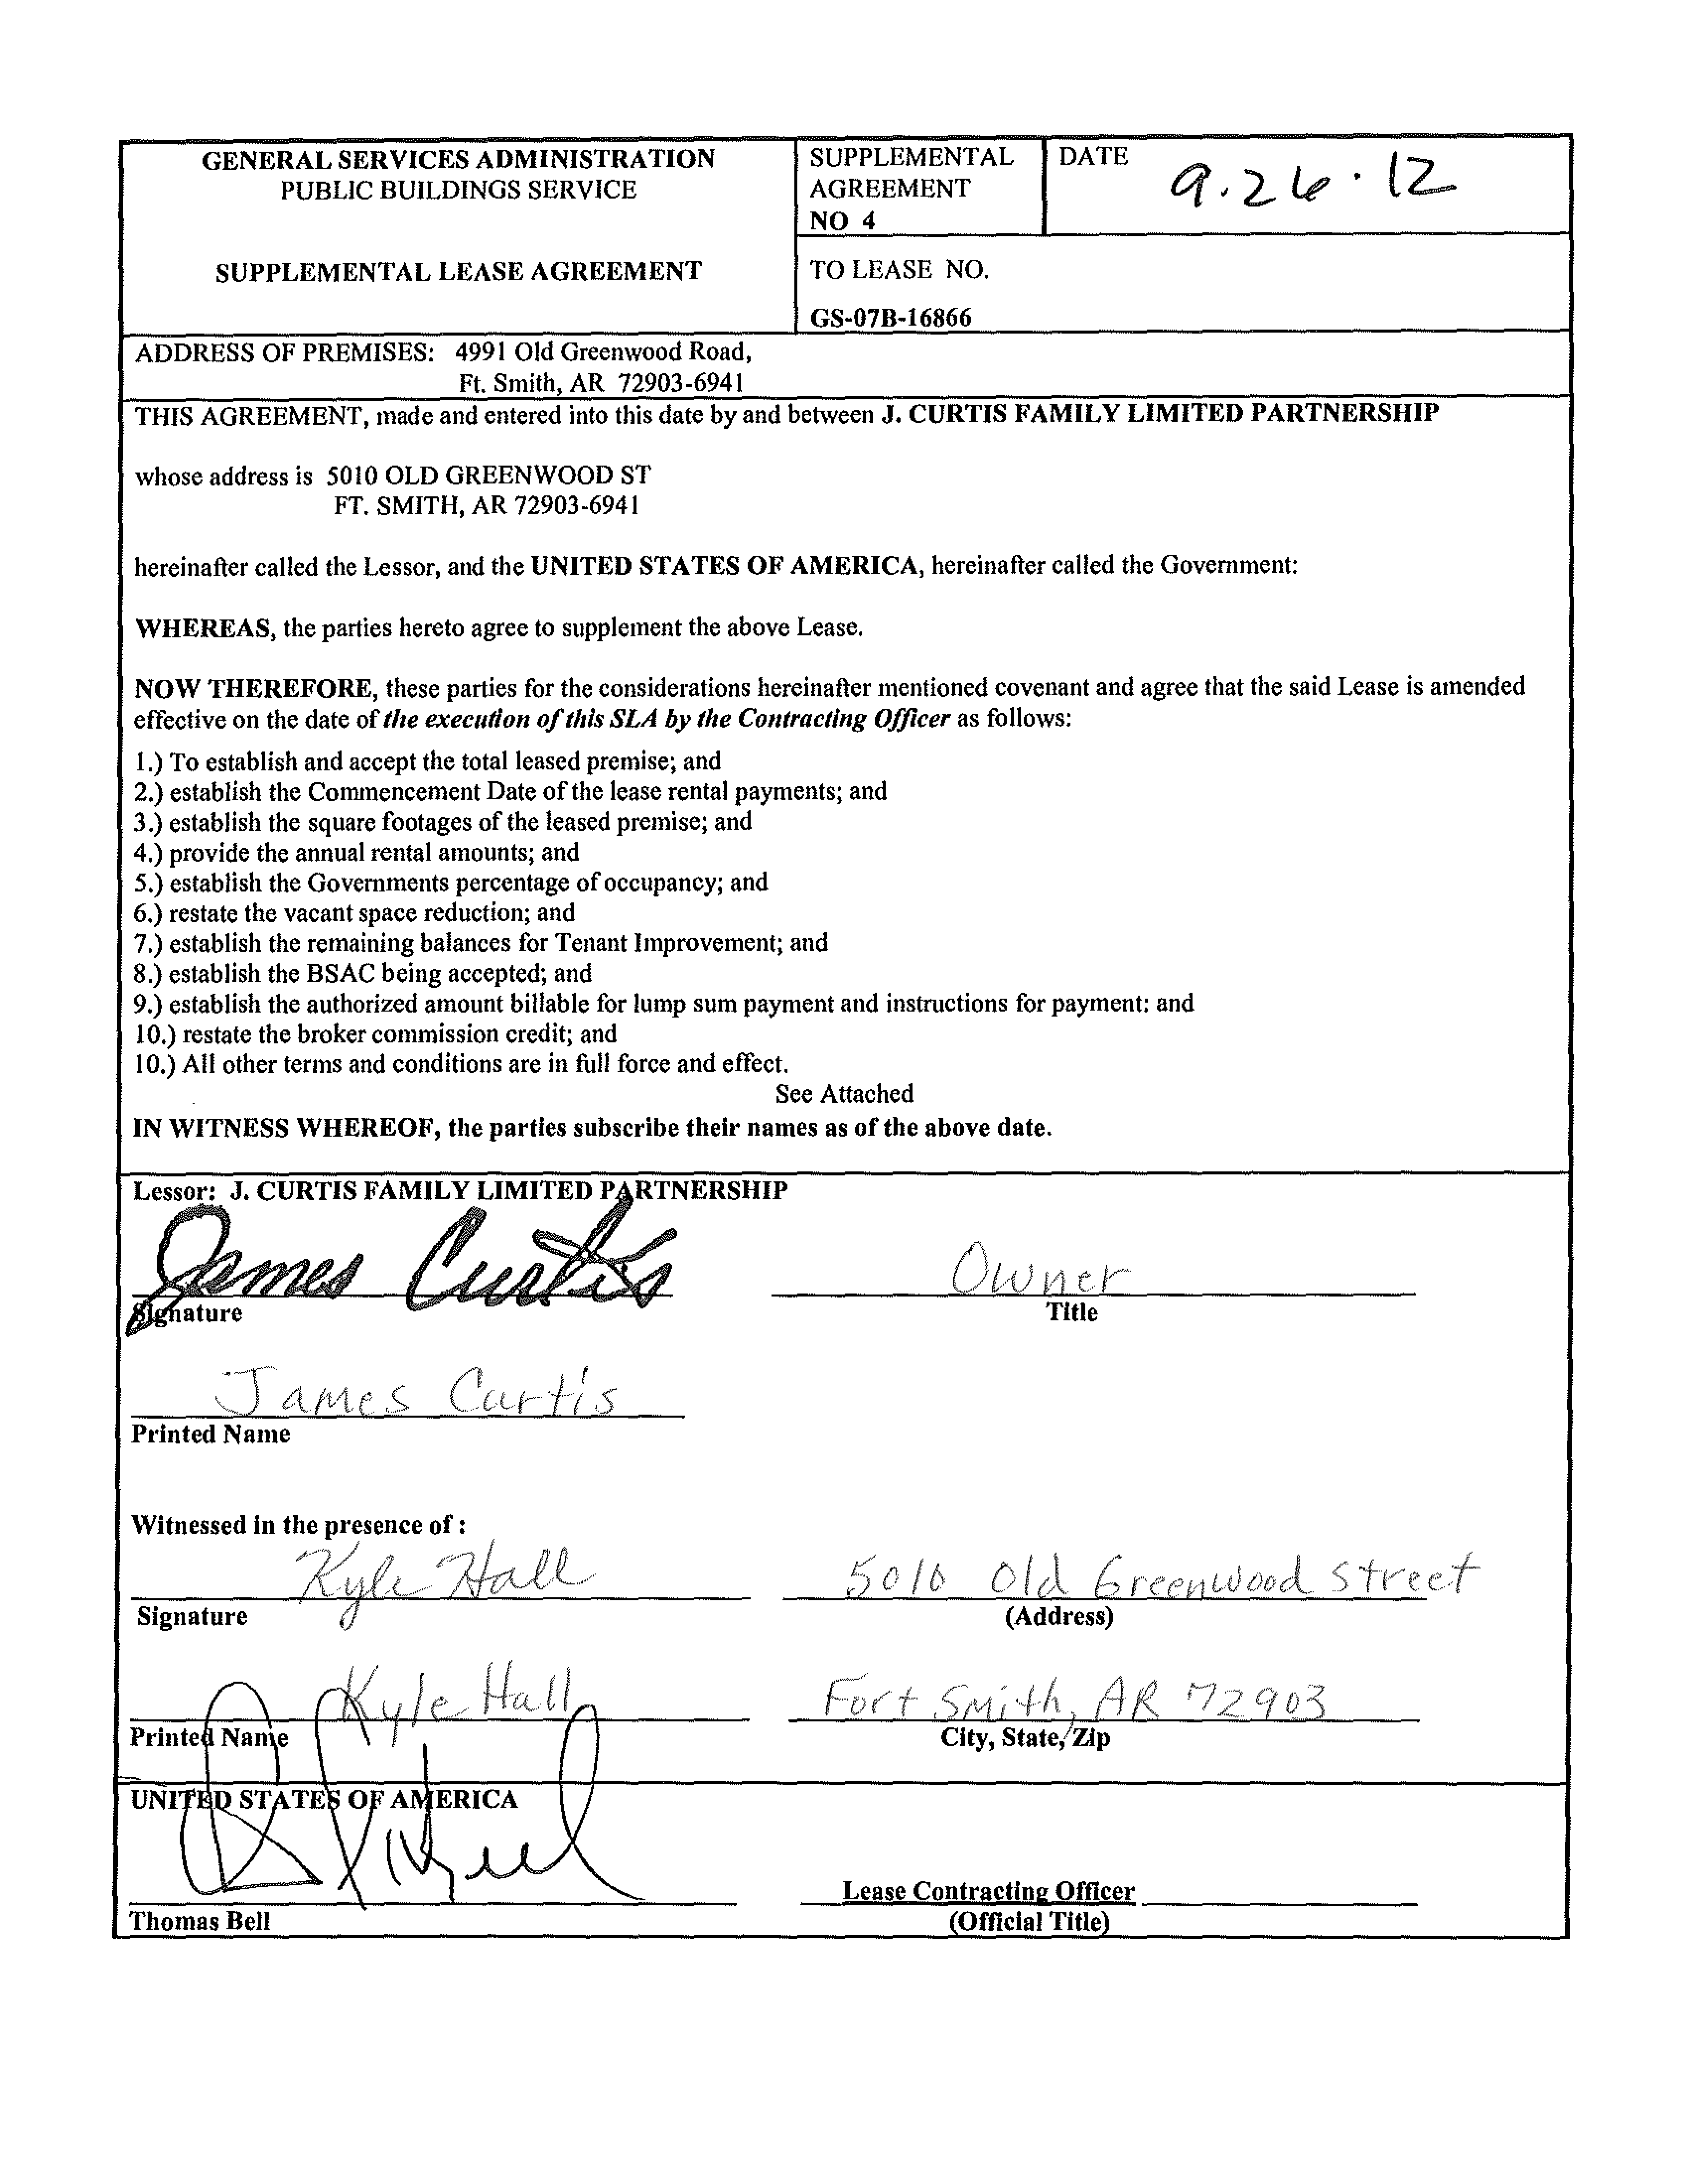 GENERAL SERVICES ADMINISTRATION
PUBLIC BUILDINGS SERVICE
SUPPLEMENTAL LEASE AGREEMENT
SUPPLEMENTAL
AGREEMENT
NO 4
DATE 9.26.12
TO LEASE NO.
GS-07B-16866
ADDRESS OF PREMISES: 4991 Old Greenwood Road,
Ft. Smith, AR 72903-6941
THIS AGREEMENT, made and entered into this date by and between J. CURTIS FAMILY LIMITED PARTNERSHIP
whose address is 5010 OLD GREENWOOD ST
FT. SMITH, AR 72903-6941
hereinafter called the Lessor, and the UNITED STATES OF AMERICA, hereinafter called the Government:
WHEREAS, the parties hereto agree to supplement the above Lease.
NOW THEREFORE, these parties for the considerations hereinafter mentioned covenant and agree that the said Lease is amended
effective on the date of the execution of this SLA by the Contracting Officer as follows:
1.) To establish and accept the total leased premise; and
2.) establish the Commencement Date of the lease rental payments; and
3.) establish the square footages of the leased premise; and
4.) provide the annual rental amounts; and
5.) establish the Governments percentage of occupancy; and
6.) restate the vacant space reduction; and
7.) establish the remaining balances for Tenant Improvement; and
8.) establish the BSAC being accepted; and
9.) establish the authorized amount billable for lump sum payment and instructions for payment: and
10.) restate the broker commission credit; and
10.) All other terms and conditions are in full force and effect.
See Attached
IN WITNESS WHEREOF, the parties subscribe their names as of the above date.
Lessor: J. CURTIS FAMILY LIMITED PARTNERSHIP
James Curtis Owner
Signature Title
James Curtis
Printed Name
Witnessed in the presence of :
Kyle Hall 5010 Old Greenwood Street
Signature (Address)
Kyle Hall Fort Smith, AR 72903
Printed Name City, State, Zip
UNITED STATES OF AMERICA
Lease Contracting Officer
Thomas Bell (Official Title)